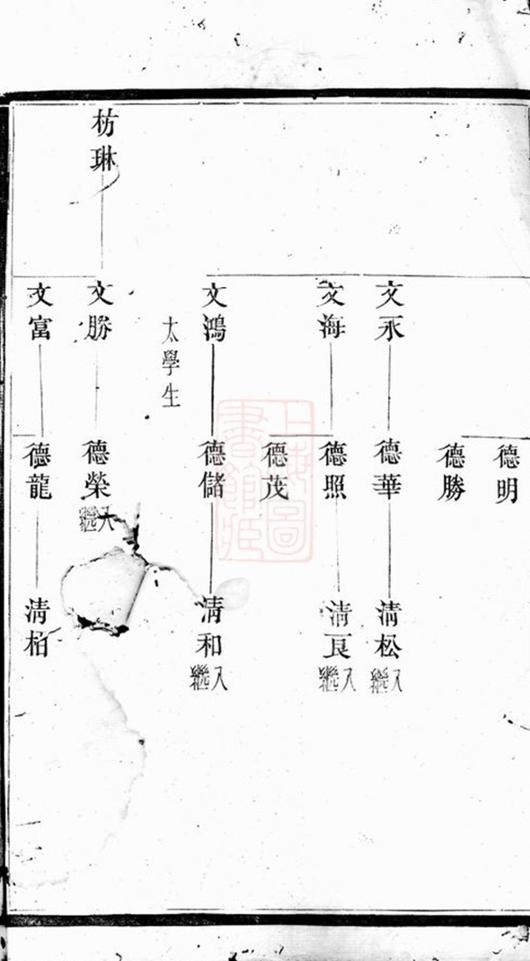 德明
德勝
文永
德華
清松
入繼
文海
德照
清良
入繼
德茂
文鴻
太學生
德儲
清和
入繼
枋琳
文勝
德榮
入繼
文富
德龍
清栢
上海圖書館藏